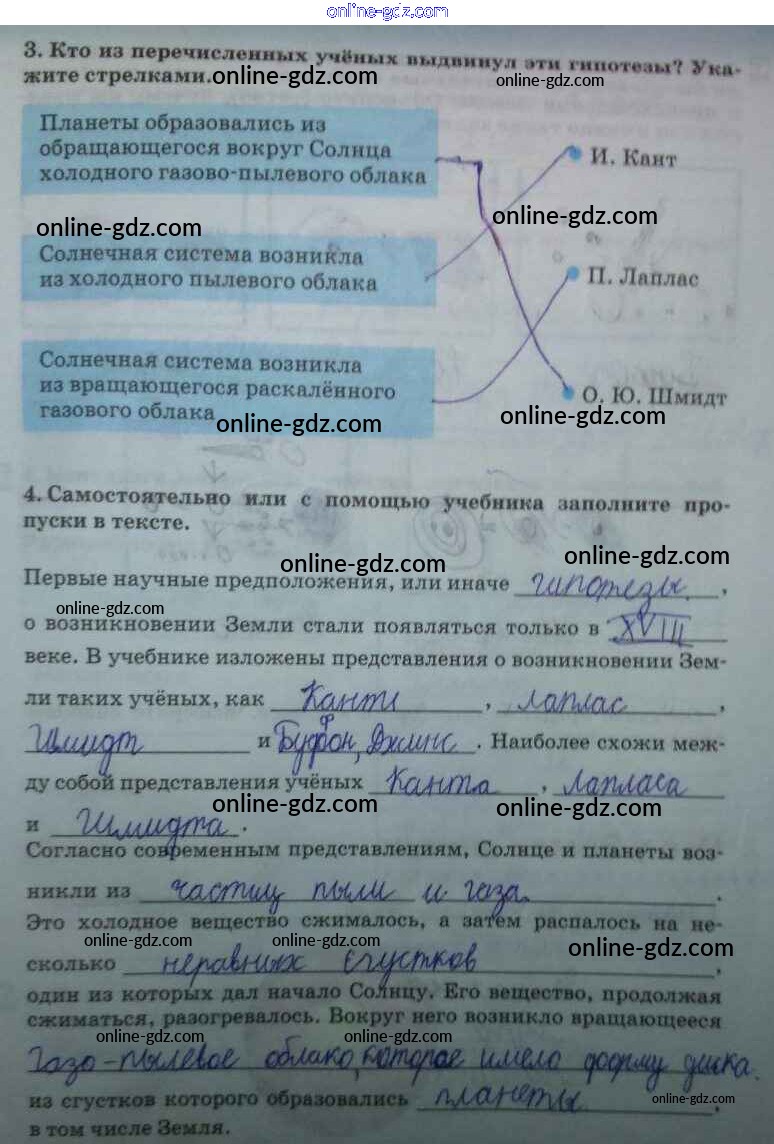 online-gdz.com
3. Кто из перечисленных учёных выдвинул эти гипотезы? Ука-
жите стрелками. online-gdz.com online-gdz.com
Планеты образовались из
обращающегося вокруг Солнца
холодного газово-пылевого облака
И. Кант
online-gdz.com online-gdz.com
Солнечная система возникла
из холодного пылевого облака
П. Лаплас
Солнечная система возникла
из вращающегося раскалённого
газового облака
О. Ю. Шмидт
online-gdz.com online-gdz.com
4. Самостоятельно или с помощью учебника заполните про-
пуски в тексте.
online-gdz.com online-gdz.com
Первые научные предположения, или иначе гипотезы,
online-gdz.com
о возникновении Земли стали появляться только в XVIII
веке. В учебнике изложены представления о возникновении Зем-
ли таких учёных, как Кант, Лаплас,
Шмидт и Бюффон, Джинс. Наиболее схожи меж-
ду собой представления учёных Канта, Лапласа
online-gdz.com online-gdz.com
и Шмидта.
Согласно современным представлениям, Солнце и планеты воз-
никли из частиц пыли и газа.
Это холодное вещество сжималось, а затем распалось на не-
online-gdz.com online-gdz.com online-gdz.com
сколько неравных сгустков,
один из которых дал начало Солнцу. Его вещество, продолжая
сжиматься, разогревалось. Вокруг него возникло вращающееся
online-gdz.com online-gdz.com
газо-пылевое облако, которое имело форму диска.
из сгустков которого образовались планеты,
online-gdz.com
в том числе Земля.